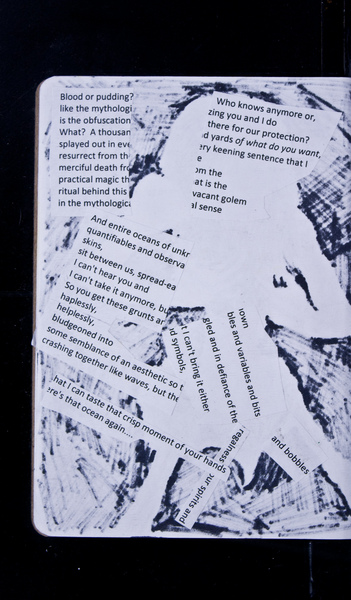 Blood or pudding?
like the mythologi
is the obfuscation
What? A thousan
splayed out in eve
resurrect from th
merciful death fr
practical magic th
ritual behind this
in the mythologica
Who knows anymore or,
zing you and I do
there for our protection?
d yards of what do you want,
ery keening sentence that I
e
om the
at is the
vacant golem
al sense
And entire oceans of unkr
quantifiables and observa
skins,
sit between us, spread-ea
I can't hear you and
I can't take it anymore, bu
So you get these grunts ar
haplessly,
helplessly,
bludgeoned into
some semblance of an aesthetic so t
crashing together like waves, but the
t I can't bring it either
d symbols,
iown
bles and variables and bits
gled and in defiance of the
hat I can taste that crisp moment of your hands
ere's that ocean again....
regalness
our spirits and
and bobbles